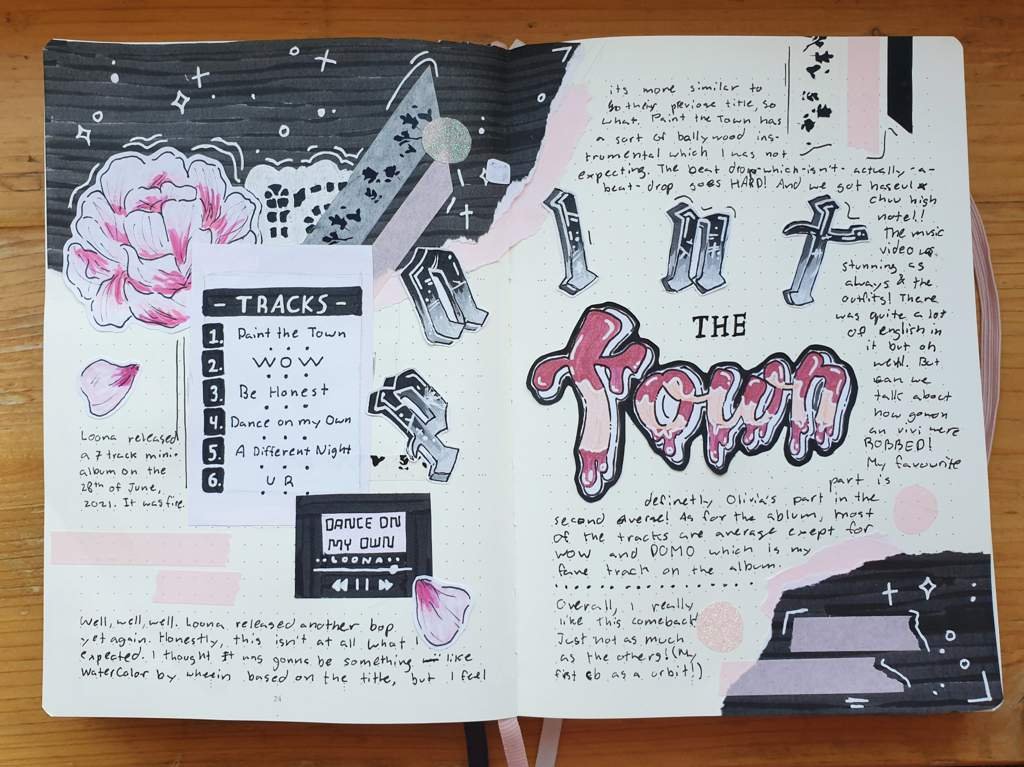 - TRACKS -
1. Paint the Town
2. WOW
3. Be Honest
4. Dance on my Own
5. A Different Night
6. U R
Loona released
a 7 track mini-
album on the
28th of June,
2021. It was fire.
DANCE ON
MY OWN
LOONA
Well, well, well. Loona released another bop
yet again. Honestly, this isn't at all what I
expected. I thought it was gonna be something like
WaterColor by wheein based on the title, but I feel
24
its more similar to
to their previose title, so
what. Paint the Town has
a sort of bollywood ins-
trumental which I was not
expecting. The beat drop-which-isn't-actually-a-
beat-drop goes HARD! And we got haseul &
chuu high
notes!!
The music
video was
stunning as
always & the
outfits! There
was quite a lot
of english in
it but oh
well. But
can we
talk about
how gowon
an vivi were
ROBBED!
My favourite
part is
definetly Olivia's part in the
second verse! As for the ablum, most
of the tracks are average exept for
WOW and DOMO which is my
fave track on the album.
Overall, I really
like this comeback
Just not as much
as the others! (My
first cb as a orbit!)
Pa
int
THE
Town